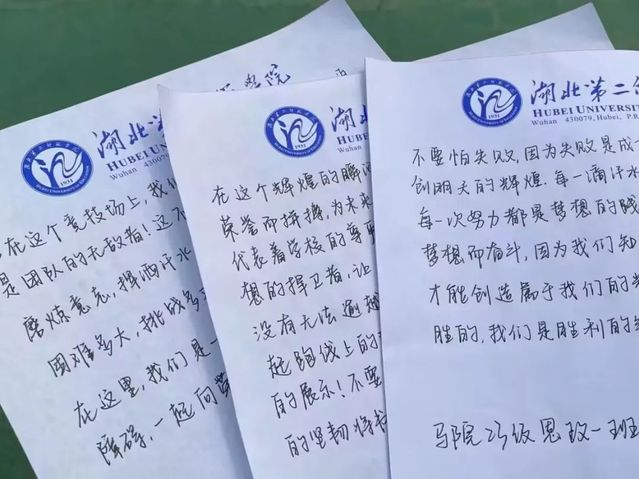 学院
湖北
HUBEI UNIVER
Wuhan 4300
1931
在这个竞技场上,我们
是团队的无敌者!这不
磨炼意志,挥洒汗水
困难多大,挑战多
在这里,我们是一
障碍,一起向
湖北
HUBEI UNI
Wuhan 430
1931
在这个辉煌的瞬
荣誉而拼搏,为未来
代表着学校的尊
想的捍卫者,让
没有无法逾越
起跑线上的
的展示!不要
的坚韧将
湖北第二
HUBEI UNIVERSITY
Wuhan 430079, Hubei, P.R.
1931
不要怕失败,因为失败是成
创明天的辉煌.每一滴汗水
每一次努力都是梦想的
梦想而奋斗,因为我们知
才能创造属于我们的
胜的,我们是胜利的
马院23级思政一班